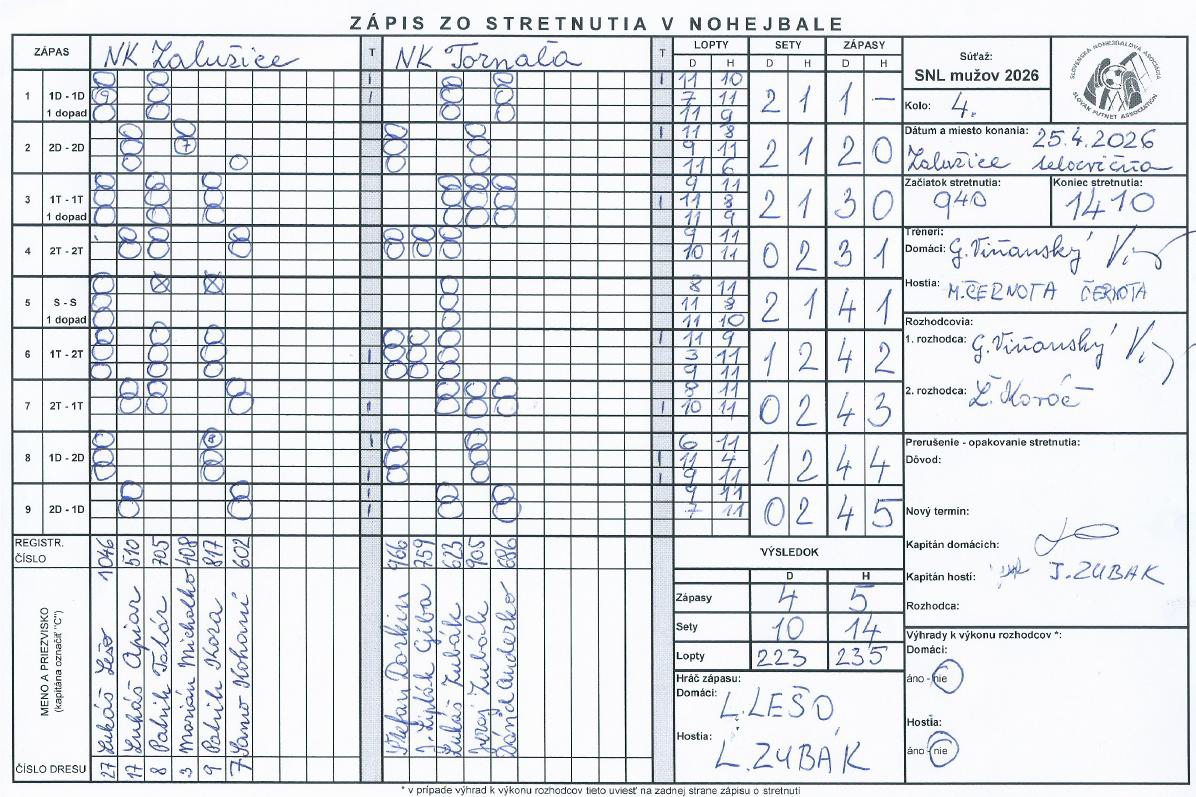 ZÁPIS ZO STRETNUTIA V NOHEJBALE
ZÁPAS
NK Zalužice
T
NK Tornaľa
T
LOPTY
SETY
ZÁPASY
D H D H D H
1 1D - 1D 1 dopad
11 10
7 11
11 9
2 1 1 —
2 2D - 2D
11 8
9 11
11 6
2 1 2 0
3 1T - 1T 1 dopad
9 11
11 8
11 9
2 1 3 0
4 2T - 2T
9 11
10 11
0 2 3 1
5 S - S 1 dopad
8 11
11 8
11 10
2 1 4 1
6 1T - 2T
11 9
3 11
9 11
1 2 4 2
7 2T - 1T
8 11
10 11
0 2 4 3
8 1D - 2D
6 11
11 4
9 11
1 2 4 4
9 2D - 1D
9 11
7 11
0 2 4 5
REGISTR. ČÍSLO
1046 510 705 408 817 602
966 759 623 905 686
MENO A PRIEZVISKO
(kapitána označiť "C")
Lukáš Lešo
Lukáš Apiar
Patrik Tatár
Marián Michalko
Patrik Kora
Samo Kohani
Štefan Dorkin
J. Lipták Giba
Lukáš Zubák
Juraj Zubák
Dávid Anderko
ČÍSLO DRESU
27 17 8 3 9 7
VÝSLEDOK
D H
Zápasy 4 5
Sety 10 14
Lopty 223 235
Hráč zápasu:
Domáci:
L. LEŠO
Hostia:
L. ZUBÁK
Súťaž:
SNL mužov 2026
Kolo: 4.
SLOVENSKÁ NOHEJBALOVÁ ASOCIÁCIA
SLOVAK FUTNET ASSOCIATION
Dátum a miesto konania: 25.4.2026
Zalužice telocvičňa
Začiatok stretnutia:
9 40
Koniec stretnutia:
14 10
Tréneri:
Domáci: G. Viňanský
Hostia: M. ČERNOTA ČERNOTA
Rozhodcovia:
1. rozhodca: G. Viňanský
2. rozhodca:
Prerušenie - opakovanie stretnutia:
Dôvod:
Nový termín:
Kapitán domácich:
Kapitán hostí: J. ZUBAK
Rozhodca:
Výhrady k výkonu rozhodcov *:
Domáci:
áno - nie
Hostia:
áno - nie
* v prípade výhrad k výkonu rozhodcov tieto uviesť na zadnej strane zápisu o stretnutí